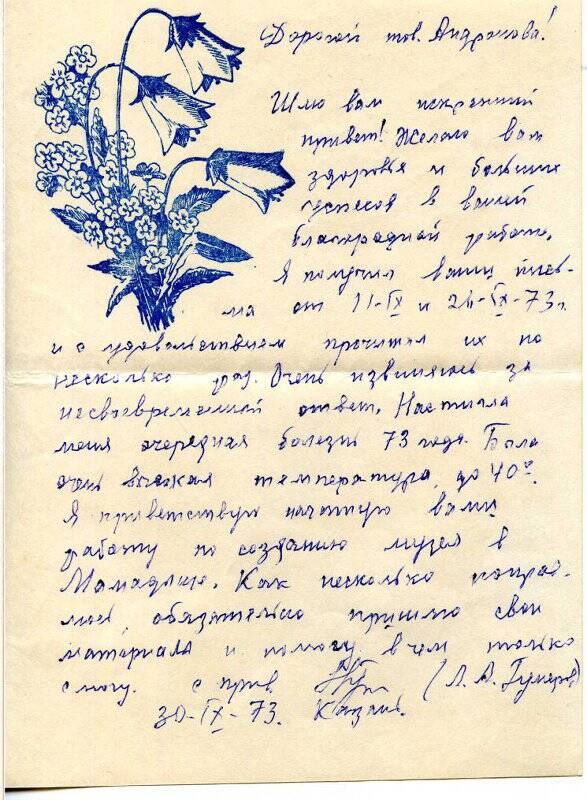 Дорогой тов. Андронова!
Шлю вам искренний
привет! Желаю вам
здоровья и больших
успехов в вашей
благородной работе.
Я получил ваши пись-
ма от 11-IX и 26-IX-73 г.
и с удовольствием прочитал их по
несколько раз. Очень извиняюсь за
несвоевременный ответ. Настигла
меня очередная болезнь 73 года. Была
очень высокая температура, до 40°.
Я приветствую начатую вами
работу по созданию музея в
Мамадыше. Как несколько поправ-
люсь, обязательно пришлю свои
материала и помогу в чем только
смогу. С прив. (Л. А. Гумеров)
30-IX-73. Казань.